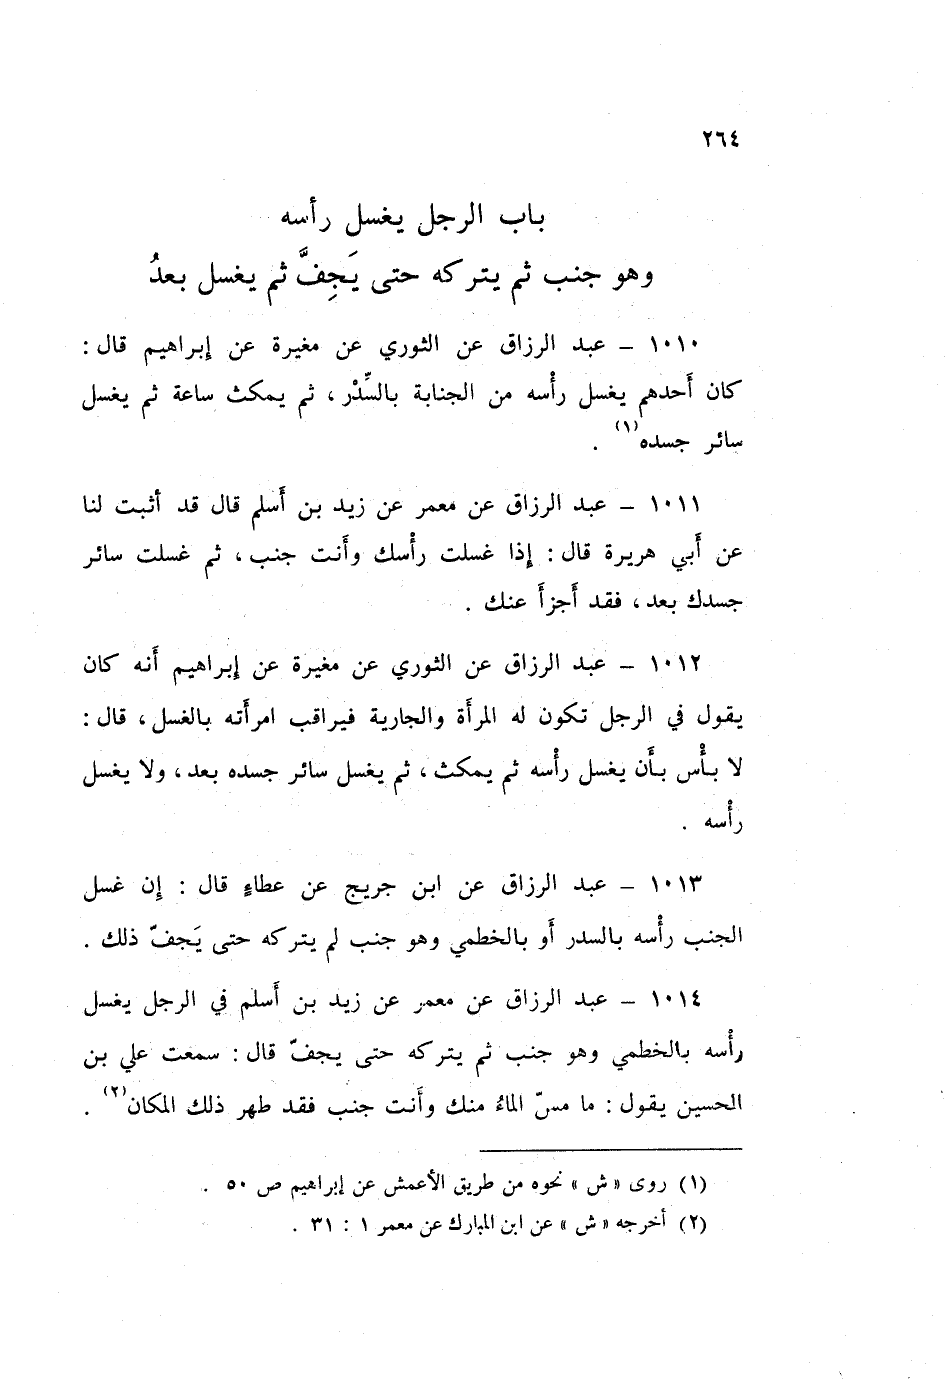 ٢٦٤
باب الرجل يغسل رأسه
وهو جنب ثم يتركه حتى يَجِفَّ ثم يغسل بعدُ
١٠١٠ – عبد الرزاق عن الثوري عن مغيرة عن إبراهيم قال :
كان أَحدهم يغسل رأْسه من الجنابة بالسِّدْر ، ثم يمكث ساعة ثم يغسل
سائر جسده(١) .
١٠١١ – عبد الرزاق عن معمر عن زيد بن أَسلم قال قد أثبت لنا
عن أَبي هريرة قال : إِذا غسلت رأْسك وأَنت جنب ، ثم غسلت سائر
جسدك بعد ، فقد أَجزأَ عنك .
١٠١٢ – عبد الرزاق عن الثوري عن مغيرة عن إبراهيم أَنه كان
يقول في الرجل تكون له المرأَة والجارية فيراقب امرأَته بالغسل ، قال :
لا بأْس بأَن يغسل رأْسه ثم يمكث ، ثم يغسل سائر جسده بعد ، ولا يغسل
رأْسه .
١٠١٣ – عبد الرزاق عن ابن جريج عن عطاءٍ قال : إِن غسل
الجنب رأْسه بالسدر أَو بالخطمي وهو جنب لم يتركه حتى يَجفّ ذلك .
١٠١٤ – عبد الرزاق عن معمر عن زيد بن أَسلم في الرجل يغسل
رأْسه بالخطمي وهو جنب ثم يتركه حتى يجفّ قال : سمعت علي بن
الحسين يقول : ما مسّ الماءُ منك وأَنت جنب فقد طهر ذلك المكان(٢) .
(١) روى « ش » نحوه من طريق الأعمش عن إبراهيم ص ٥٠ .
(٢) أخرجه « ش » عن ابن المبارك عن معمر ١ : ٣١ .